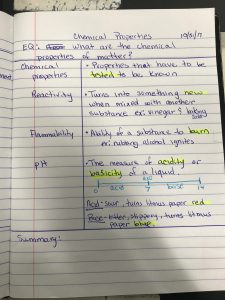 Chemical Properties 10/5/17
EQ: What are the chemical
properties of matter?
Chemical • Properties that have to be
properties tested to be known
Reactivity • Turns into something new
when mixed with another
substance ex: vinegar & baking
soda
Flammability • Ability of a substance to burn
ex: rubbing alcohol ignites
pH • The measure of acidity or
basicity of a liquid.
acid base
0 7 14
Acid- sour, turns litmus paper red
Base- bitter, slippery, turns litmus
paper blue.
Summary: